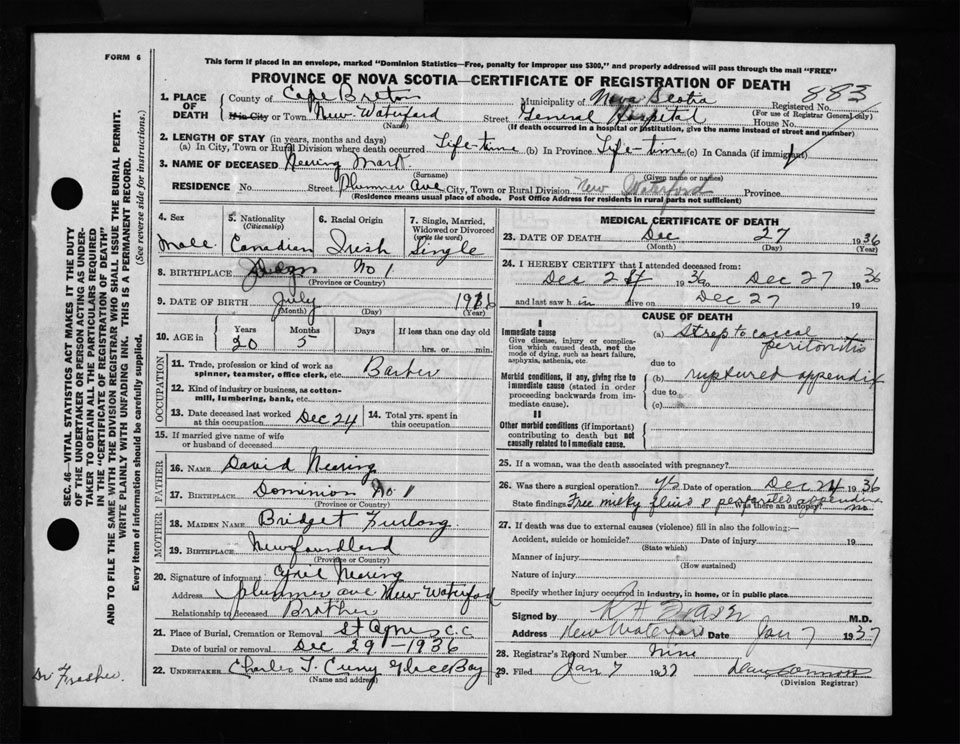 FORM 6
This form if placed in an envelope, marked "Dominion Statistics—Free, penalty for improper use $300," and properly addressed will pass through the mail "FREE"
PROVINCE OF NOVA SCOTIA—CERTIFICATE OF REGISTRATION OF DEATH
883
1. PLACE OF DEATH
County of Cape Breton Municipality of Nova Scotia Registered No.
(For use of Registrar General only)
City or Town New Waterford Street General Hospital House No.
(Name) (If death occurred in a hospital or institution, give the name instead of street and number)
2. LENGTH OF STAY (in years, months and days)
(a) In City, Town or Rural Division where death occurred Life-time (b) In Province Life-time (c) In Canada (if immigrant)
3. NAME OF DECEASED Nearing Mark
(Surname) (Given name or names)
RESIDENCE No. Street Plummer Ave City, Town or Rural Division New Waterford Province
(Residence means usual place of abode. Post Office Address for residents in rural parts not sufficient)
4. Sex
Male
5. Nationality
(Citizenship)
Canadian
6. Racial Origin
Irish
7. Single, Married, Widowed or Divorced
(write the word)
Single
8. BIRTHPLACE No 1
(Province or Country)
9. DATE OF BIRTH July 19
(Month) (Day) (Year)
10. AGE in
Years Months Days If less than one day old
20 5 hrs. or min.
OCCUPATION
11. Trade, profession or kind of work as spinner, teamster, office clerk, etc. Barber
12. Kind of industry or business, as cotton-mill, lumbering, bank, etc.
13. Date deceased last worked at this occupation Dec 24
14. Total yrs. spent in this occupation
15. If married give name of wife or husband of deceased
FATHER
16. NAME David Nearing
17. BIRTHPLACE Dominion No 1
(Province or Country)
MOTHER
18. MAIDEN NAME Bridget Furlong
19. BIRTHPLACE Newfoundland
(Province or Country)
20. Signature of informant Nearing
Address Plummer ave New Waterford
Relationship to deceased Brother
21. Place of Burial, Cremation or Removal St Agnes C.C
Date of burial or removal Dec 29 - 1936
22. UNDERTAKER Charles J. Curry Glace Bay
(Name and address)
MEDICAL CERTIFICATE OF DEATH
23. DATE OF DEATH Dec 27 1936
(Month) (Day) (Year)
24. I HEREBY CERTIFY that I attended deceased from:
Dec 1936 to Dec 27 1936
and last saw him alive on Dec 27 19
CAUSE OF DEATH
I
Immediate cause
Give disease, injury or complication which caused death, not the mode of dying, such as heart failure, asphyxia, asthenia, etc.
(a) Streptococcal peritonitis
due to
Morbid conditions, if any, giving rise to immediate cause (stated in order proceeding backwards from immediate cause).
(b) ruptured appendix
due to
(c)
II
Other morbid conditions (if important) contributing to death but not causally related to immediate cause.
25. If a woman, was the death associated with pregnancy?
26. Was there a surgical operation? yes Date of operation Dec 24 1936
State findings Free milky fluid & perforated appendix Was there an autopsy? no
27. If death was due to external causes (violence) fill in also the following:—
Accident, suicide or homicide? Date of injury 19
(State which)
Manner of injury
(How sustained)
Nature of injury
Specify whether injury occurred in industry, in home, or in public place
Signed by M.D.
Address New Waterford Date Jan 7 1937
28. Registrar's Record Number nine
29. Filed Jan 7 1937
(Division Registrar)
SEC. 46—VITAL STATISTICS ACT MAKES IT THE DUTY
OF THE UNDERTAKER OR PERSON ACTING AS UNDER-
TAKER TO OBTAIN ALL THE PARTICULARS REQUIRED
IN THE "CERTIFICATE OF REGISTRATION OF DEATH"
AND TO FILE THE SAME WITH THE DIVISION REGISTRAR WHO SHALL ISSUE THE BURIAL PERMIT.
WRITE PLAINLY WITH UNFADING INK. THIS IS A PERMANENT RECORD.
Every item of information should be carefully supplied. (See reverse side for instructions.)
Dr